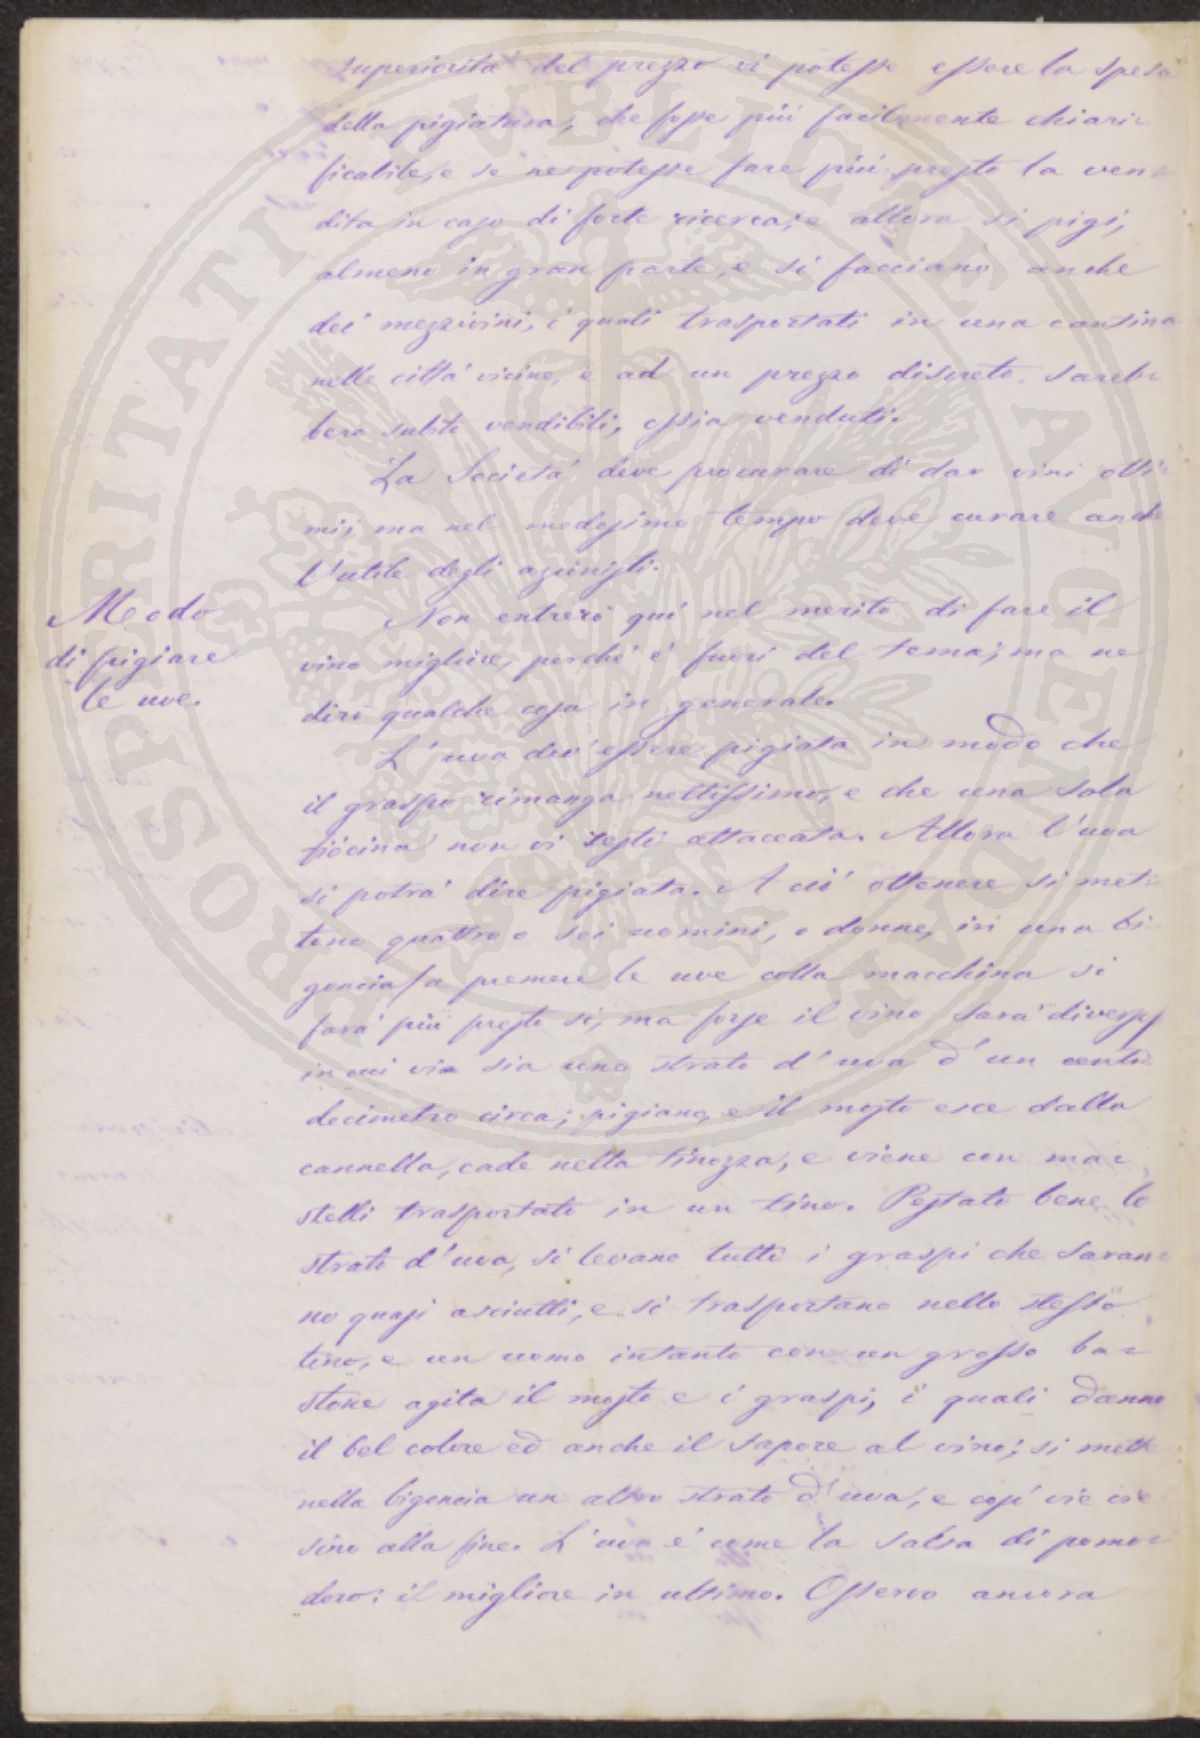 superiorità del prezzo vi potesse essere la spesa
della pigiatura, che fosse più facilmente chiari=
ficabile, e se ne potesse fare più presto la ven=
dita in caso di forte ricerca; e allora si pigi,
almeno in gran parte, e si facciano anche
dei mezzivini, i quali trasportati in una cantina
nelle città vicine, e ad un prezzo discreto, sareb=
bero subito vendibili, ossia venduti.
La Società deve procurare di dar vini otti=
mi; ma nel medesimo tempo deve curare anche
l'utile degli azionisti.
Modo
di pigiare
le uve.
Non entrerò quì nel merito di fare il
vino migliore, perché é fuori del tema; ma ne
dirò qualche cosa in generale.
L'uva dev'essere pigiata in modo che
il graspo rimanga nettissimo, e che una sola
fiócina non vi resti attaccata. Allora l'uva
si potrà dire pigiata. A ció ottenere si met=
tono quattro o sei uomini, o donne, in una bi=
goncia (a premere le uve colla macchina si
farà più presto si, ma forse il vino sarà diverso)
in cui via sia uno strato d'uva d'un
decimetro circa; pigiano, e il mosto esce dalla
cannella, cade nella tinozza, e viene con ma=
stelli trasportato in un tino. Pestato bene lo
strato d'uva, si levano tutti i graspi che saran=
no quasi asciutti, e si trasportano nello stesso
tino, e un uomo intanto con un grosso ba=
stone agita il mosto e i graspi, i quali danno
il bel colore ed anche il sapore al vino; si mette
nella bigoncia un altro strato d'uva, e così vie vie
sino alla fine. L'uva é come la salsa di pomo=
doro: il migliore in ultimo. Osservo ancora